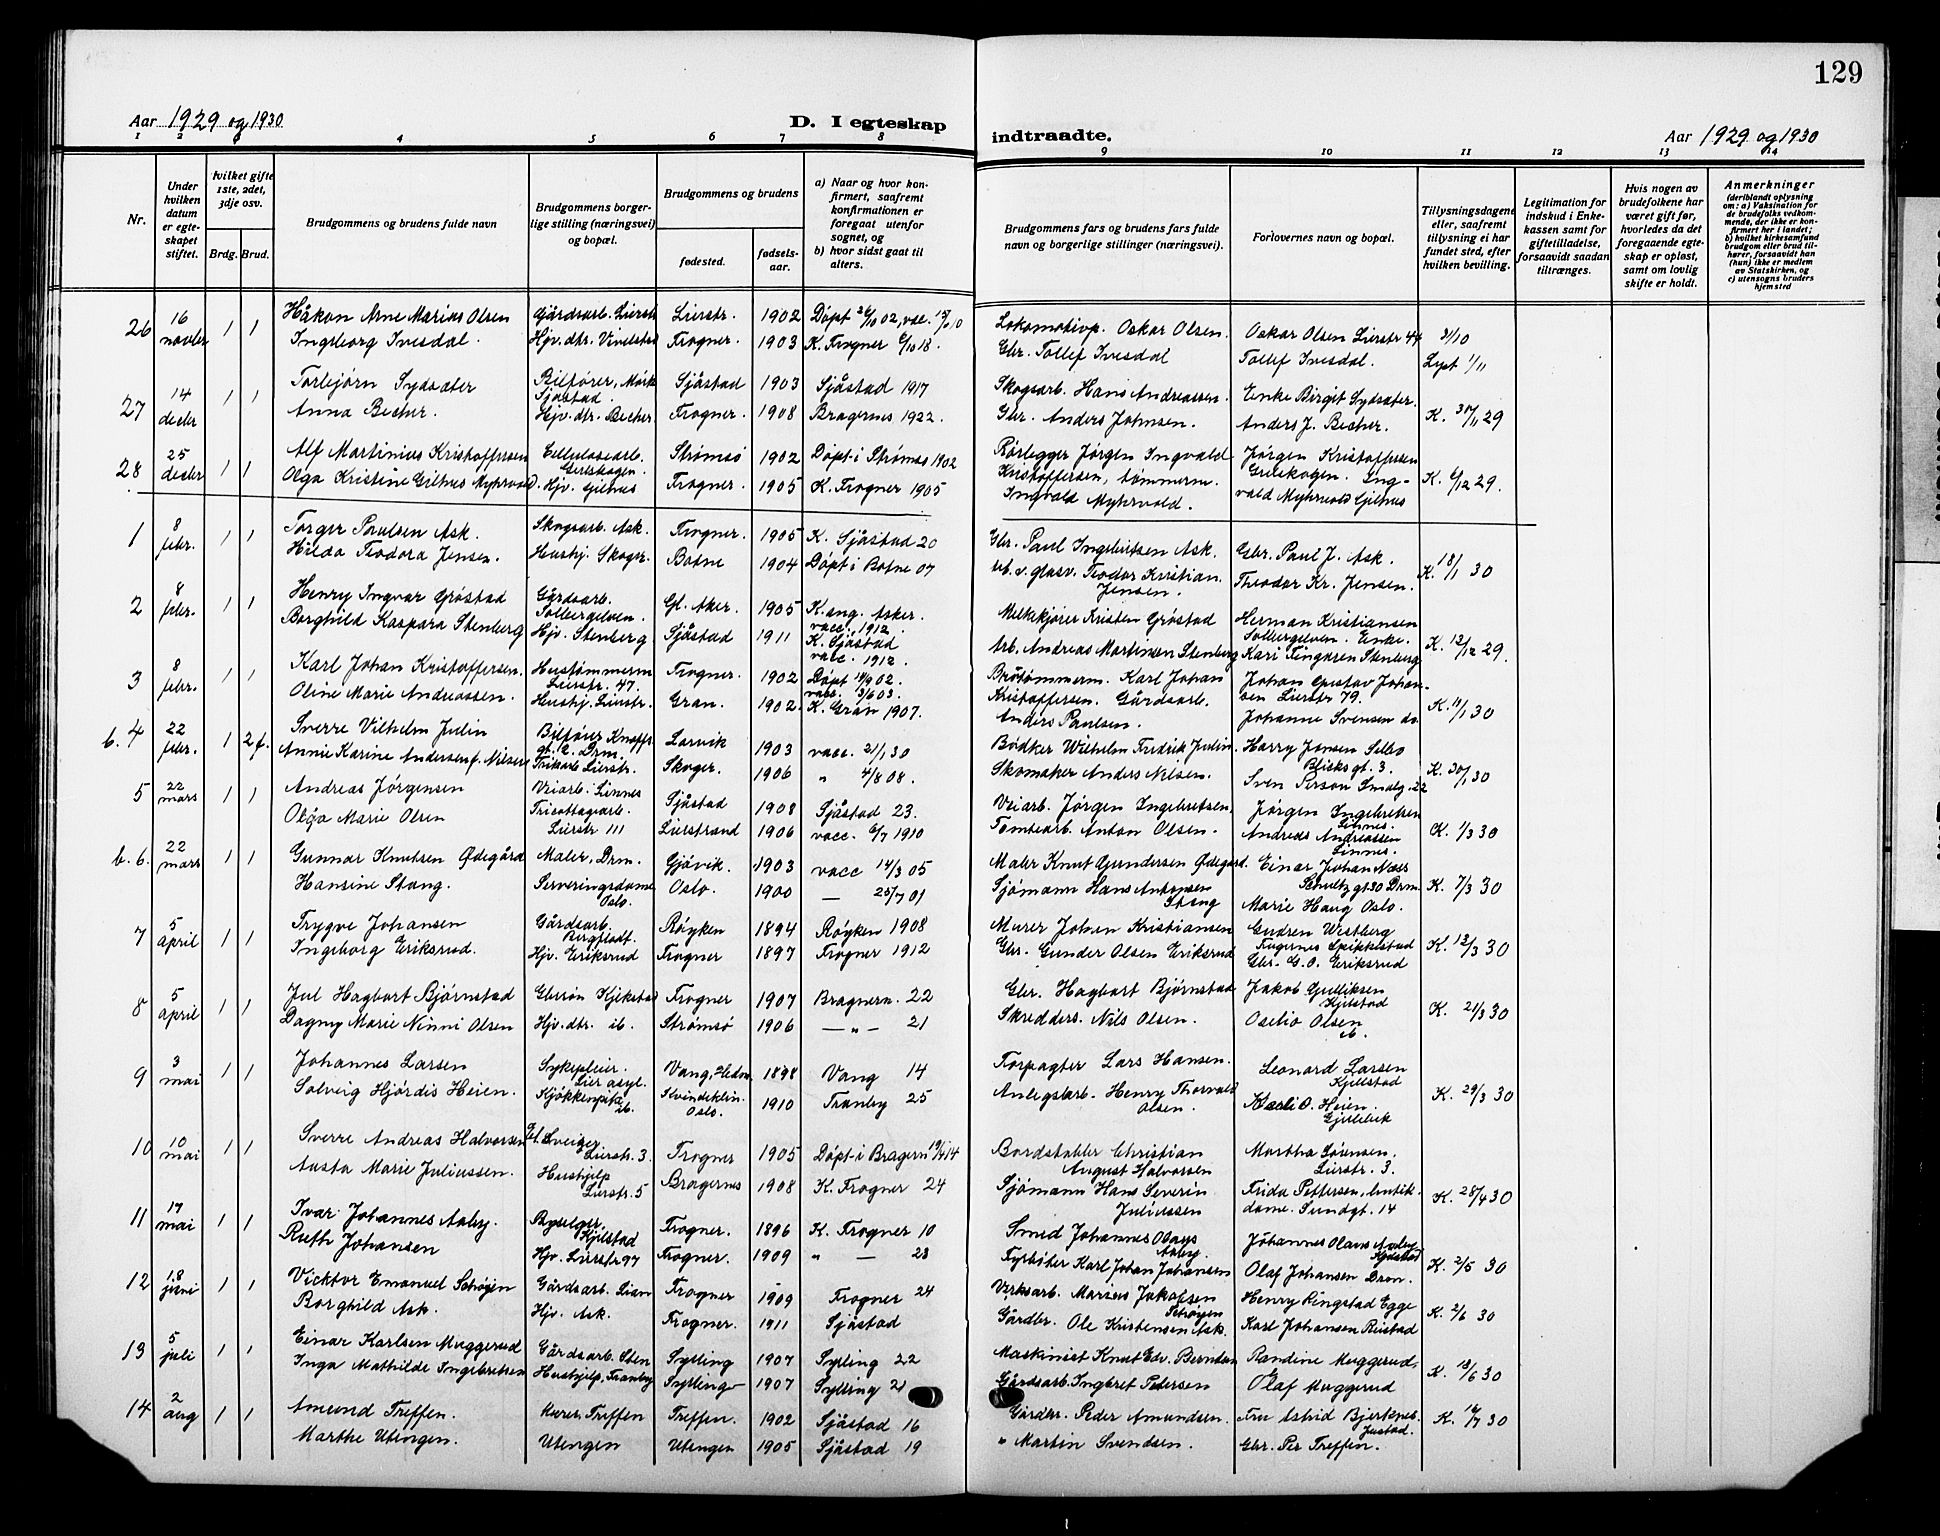 129
Aar 1929 og 1930
D. I egteskap
indtraadte.
Aar 1929 og 1930
1 2 3 4 5 6 7 8
9 10 11 12 13 14
Nr.
Under hvilken datum er egteskapet stiftet.
hvilket gifte 1ste, 2det, 3dje osv.
Brdg. Brud.
Brudgommens og brudens fulde navn
Brudgommens borgerlige stilling (næringsvei) og bopæl.
Brudgommens og brudens
fødested.
fødselsaar.
a) Naar og hvor konfirmert, saafremt konfirmationen er foregaat utenfor sognet, og
b) hvor sidst gaat til alters.
Brudgommens fars og brudens fars fulde navn og borgerlige stillinger (næringsvei).
Forlovernes navn og bopæl.
Tillysningsdagene eller, saafremt tillysning ei har fundet sted, efter hvilken bevilling.
Legitimation for indskud i Enkekassen samt for giftetilladelse, forsaavidt saadan tiltrænges.
Hvis nogen av brudefolkene har været gift før, hvorledes da det foregaaende egteskap er opløst, samt om lovlig skifte er holdt.
Anmerkninger
(deriblandt oplysning om: a) Vaksination for de brudefolks vedkommende, der ikke er konfirmert her i landet;
b) hvilket kirkesamfund brudgom eller brud tilhører, forsaavidt han (hun) ikke er medlem av Statskirken, og
c) utensogns bruders hjemsted
26 16 novbr 1 1 Håkon Arne Marius Olsen Gårdsarb. Lierstr Lierstr. 1902 Døpt 26/10 02, vac. Lokomotivp. Oskar Olsen. Oskar Olsen Lierstr 44 31/10
Ingeborg Ivesdal. Hjv. dtr. Frogner. 1903 K. Frogner 6/10 18. Gbr. Tollef Ivesdal Tollef Ivesdal. Lyst 1/11
27 14 decbr 1 1 Torbjørn Sydsæter Bilfører, Mørk Sjåstad. Sjåstad 1903 Sjåstad 1917 Skogsarb. Hans Andreassen. Enke Birgit Sydsæter.
Anna Becher. Hjv. dtr. Becher. Frogner. 1908 Bragernes 1922. Gbr. Anders Johnsen. Anders J. Becher. K. 30/11 29
28 25 decbr 1 1 Alf Martinius Kristoffersen Cellulosearb. Strømsø 1902 Døpt i Strømsø 1902 Rørlegger Jørgen Ingvald Kristoffersen, Jørgen Kristoffersen
Olga Kristine Gilhus Myhrvold. Hjv. Gilhus Frogner. 1905 K. Frogner 1905 tømmerm. Ingvald Myhrvold. Ingvald Myhrvold Gilhus K. 6/12 29.
1 8 febr. 1 1 Torger Paulsen Ask. Skogsarb. Ask. Frogner. 1905 K. Sjåstad 20 Gbr. Paul Ingebritsen Ask. Gbr. Paul J. Ask
Hilda Teodora Jensen. Hushj. Skoger. Botne 1904 Døpt i Botne 07 arb. v. glasv. Teodor Kristian Jensen. Theodor Kr. Jensen. K. 18/1 30
2 8 febr. 1 1 Henry Ingvar Grøstad Gårdsarb. Solbergelven. Gl. Aker. 1905 K. ang. Asker. vacc. 1912. Melkekjører Kristen Grøstad Herman Kristiansen Solbergelven. Enke.
Borghild Kaspara Stenberg Hjv. Stenberg Sjåstad 1911 K. Sjåstad vacc. 1912. Arb. Andreas Martinsen Stenberg Kari Stenberg K. 12/12 29.
3 8 febr. 1 1 Karl Johan Kristoffersen. Hustømmerm Lierstr. 47. Frogner. 1902 Døpt 14/9 02. vacc. 3/6 03. Karl Johan Kristoffersen. Johan Gustav Johansen Lierstr 79.
Oline Marie Andreassen. Hushj. Lierstr. Gran. 1902. K. Gran 1907. Gårdsarb. Anders Paulsen. Johanne Svensen do. K. 14/1 30
b. 4 22 febr. 1 2 f. Sverre Vilhelm Julin Bilfører Drm. Larvik 1903 vacc. 21/1 30 Bødker Wilhelm Fredrik Julin. Harry Jonsen Blicks gt. 3.
Annie Karine Andersen f. Nilsen Lierstr. Skoger. 1906 " 4/8 08. Skomaker Anders Nilsen. Sven Person Smalg. 22 K. 30/1 30
5 22 mars 1 1 Andreas Jørgensen Veiarb. Linnes Sjåstad 1908 Sjåstad 23. Veiarb. Jørgen Ingebretsen. Jørgen Ingebretsen Linnes.
Olga Marie Olsen Tricottagearb. Lierstr 111 Lierstrand 1906 vacc. 6/7 1910 Tomtearb. Anton Olsen. Andreas Andreassen Linnes. K. 1/3 30
b. 6. 22 mars 1 1 Gunnar Knutsen Ødegård Maler, Drm. Gjøvik. 1903 vacc 14/3 05 Maler Knut Gundersen Ødegård. Einar Johan Næss Schultz gt 30 Drm
Hansine Stang. Serveringsdame Oslo. Oslo. 1900 — 25/7 01 Sjømann Hans Antonsen Stang Marie Haug Oslo. K. 7/3 30
7 5 april 1 1 Trygve Johansen Gårdsarb. Røyken 1894 Røyken 1908 Murer Johan Kristiansen Gudren Westberg
Ingeborg Eriksrud. Hjv. Eriksrud Frogner 1897 Frogner 1912 Gbr. Gunder Olsen Eriksrud Gbr. G. O. Eriksrud K. 12/3 30
8 5 april 1 1 Jul Hagbart Bjørnstad Gbrsøn Kjekstad Frogner 1907 Bragern. 22 Gbr. Hagbart Bjørnstad Jakob Gulliksen Kjelstad
Dagny Marie Ninni Olsen Hjv. dtr. ib. Strømsø 1906 — " — 21 Skredders. Nils Olsen. Oselio Olsen ib. K. 21/3 30
9 3 mai 1 1 Johannes Larsen Sykepleier. Lier asyl. Vang, Hedm. 1898 Vang 14 Forpagter Lars Hansen. Leonard Larsen Kjellstad
Solveig Hjørdis Heien. Kjøkkenpike ib. Kvindeklin. Oslo. 1910 Tranby 25 Anlegsarb. Henry Thorvald Olsen. O. Heien. K. 29/3 30
10 10 mai 1 1 Sverre Andreas Halvorsen Lierstr. 3. Frogner 1905 Døpt i Bragern Bordstabler Christian August Halvorsen Martha Sørensen. Lierstr. 3.
Aasta Marie Juliussen. Hushjelp Lierstr. 5 Bragernes 1908 K. Frogner 24 Sjømann Hans Severin Juliussen Frida Pettersen, butikdame. Sundgt. 14 K. 28/4 30
11 17 mai 1 1 Ivar Johannes Aaby. Byselger, Kjelstad Frogner. 1896 K. Frogner 10 Smed Johannes Olaus Aaby. Johannes Olaus Aaby Kjelstad
Ruth Johansen Hjv. Lierstr 97 Frogner. 1909 " — 23 Fyrbøter Karl Johan Johansen Olaf Johansen Drm. K. 2/5 30
12 18 juni 1 1 Vicktor Emanuel Schøyen Gårdsarb. Lian Frogner 1909 Frogner 24 Verksarb. Marius Jakobsen Schøyen Henry Ringstad Egge
Borghild Ask. Hjv. Ask. Frogner. 1911 Sjåstad Gårdbr. Ole Kristensen Ask. Karl Johansen Reistad K. 2/6 30
13 5 juli 1 1 Einar Karlsen Muggerud Gårdsarb. Sten Sylling 1907 Sylling 22 Maskinist Knut Edv. Berntsen Randine Muggerud,
Inga Mathilde Ingebretsen Hushjelp, Tranby Sylling 1907 Sylling 21 Gårdsarb. Ingbret Pedersen Olaf Muggerud K. 18/6 30
14 2 aug 1 1 Amund Treffen. Murer, Treffen Treffen. 1902 Sjåstad 16 Gårdbr. Peder Amundsen. Fru Astrid Bjerknes. Justad.
Marthe Utengen. Utengen Utengen 1905 Sjåstad 19 " Martin Svendsen. Gbr. Per Treffen. K. 16/7 30